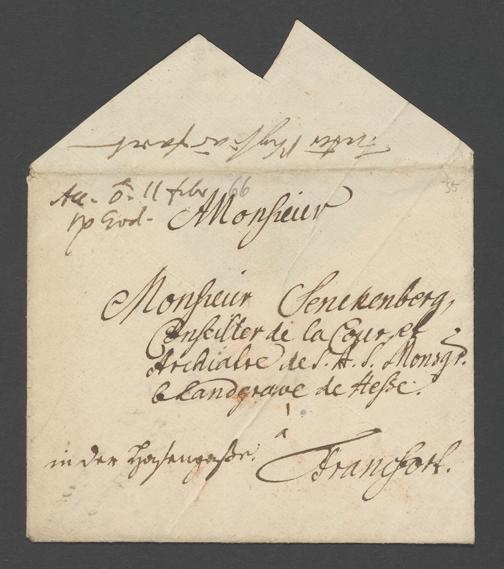 Acc. d. 11 febr 66
A Monsieur
Monsieur Senckenberg,
Conseiller de la Cour et
Archiatre de S. A. S. Monsgr.
le Landgrave de Hesse.
à
in der Hasengaße.
Francfort.
35